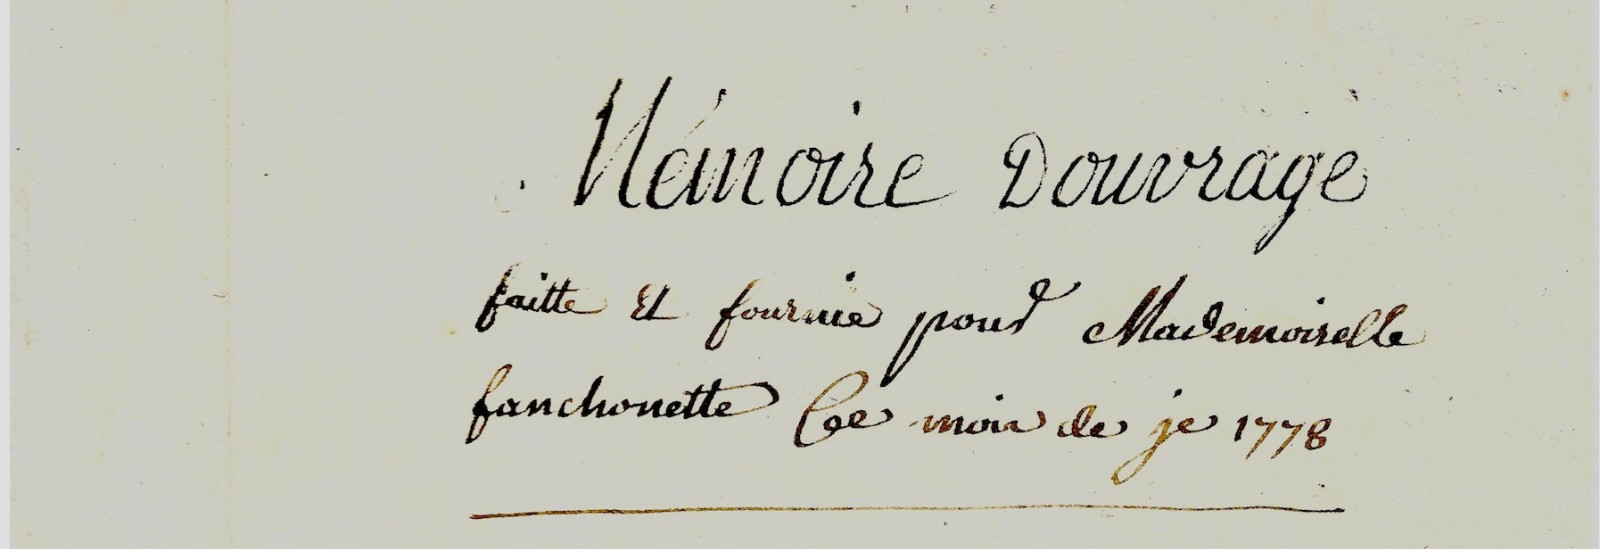 Mémoire Douvrage
faitte Et fournie pour Mademoiselle
fanchonette Ce mois de je 1778